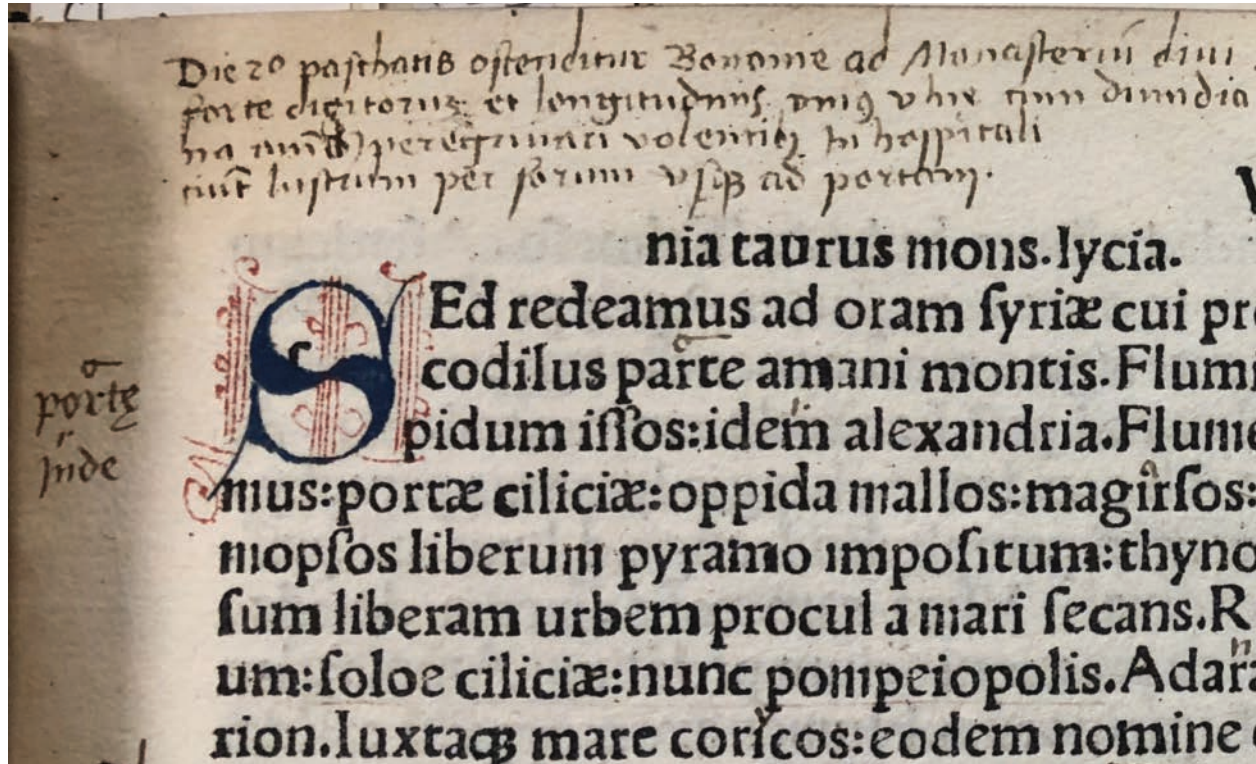 Die 20 paschatis ostenditur Bononie ad Monasteriū diui
forte digitorus et longitudinis vnius vlne cum dimidia
na peregrinari volentibꝫ in hospitali
lustrum per forum vsqꝫ ad portam.
nia taurus mons.lycia.
SEd redeamus ad oram ſyriæ cui pr
codilus parte amani montis.Flum
σ
portę
pidum iſſos:idem alexandria.Flume
r
Inde
mus:portæ ciliciæ:oppida mallos:magirſos:
mopſos liberum pyramo impoſitum:thyno
ſum liberam urbem procul a mari ſecans.R
um:ſoloe ciliciæ:nunc pompeiopolis.Adar
rion.Iuxtaqꝫ mare corícos:eodem nomine